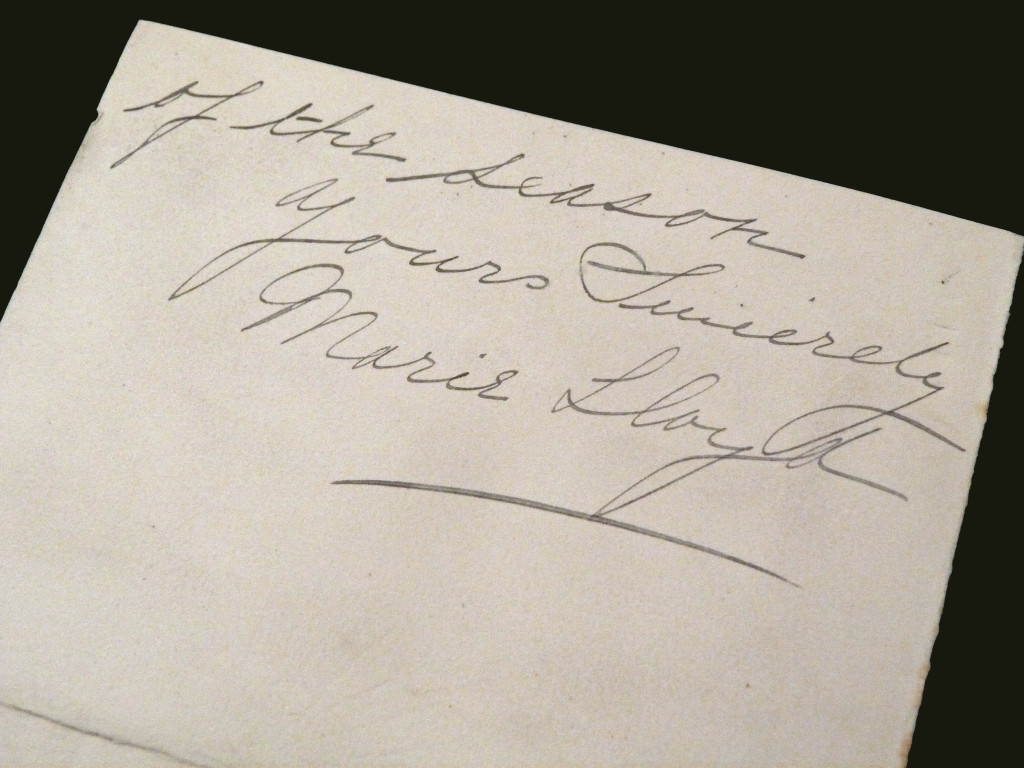 of the season
Yours Sincerely
Marie Lloyd